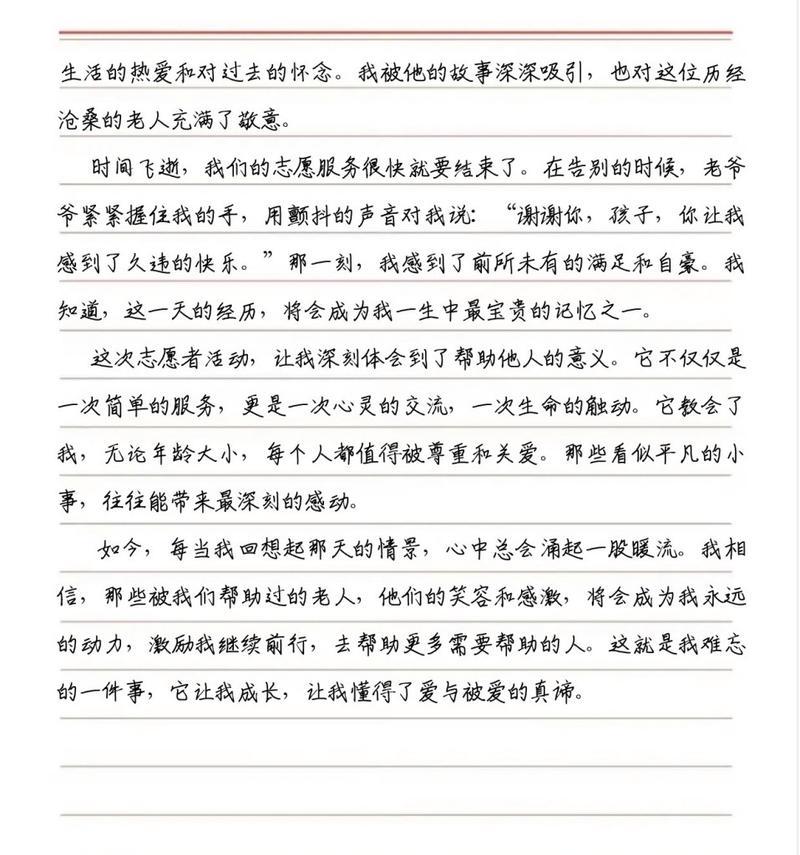 生活的热爱和对过去的怀念。我被他的故事深深吸引，也对这位历经
沧桑的老人充满了敬意。
时间飞逝，我们的志愿服务很快就要结束了。在告别的时候，老爷
爷紧紧握住我的手，用颤抖的声音对我说：“谢谢你，孩子，你让我
感到了久违的快乐。”那一刻，我感到了前所未有的满足和自豪。我
知道，这一天的经历，将会成为我一生中最宝贵的记忆之一。
这次志愿者活动，让我深刻体会到了帮助他人的意义。它不仅仅是
一次简单的服务，更是一次心灵的交流，一次生命的触动。它教会了
我，无论年龄大小，每个人都值得被尊重和关爱。那些看似平凡的小
事，往往能带来最深刻的感动。
如今，每当我回想起那天的情景，心中总会涌起一股暖流。我相
信，那些被我们帮助过的老人，他们的笑容和感激，将会成为我永远
的动力，激励我继续前行，去帮助更多需要帮助的人。这就是我难忘
的一件事，它让我成长，让我懂得了爱与被爱的真谛。